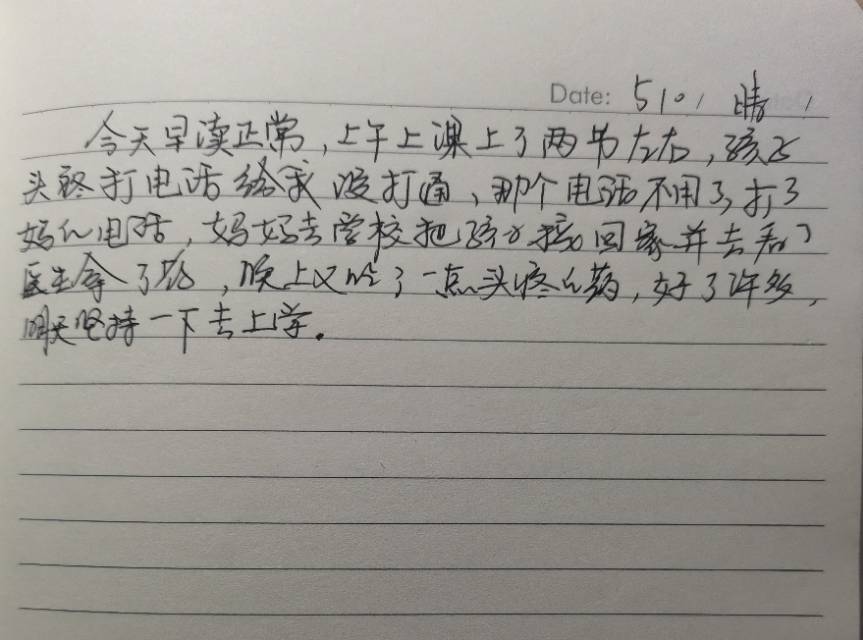 Date: 5101 晴
今天早读正常，上午上课上了两节左右，孩子
头疼打电话给我没打通，那个电话不用了，打了
妈的电话，妈妈去学校把孩子接回家并去看了
医生拿了药，晚上又吃了一点头疼的药，好了许多，
明天坚持一下去上学。